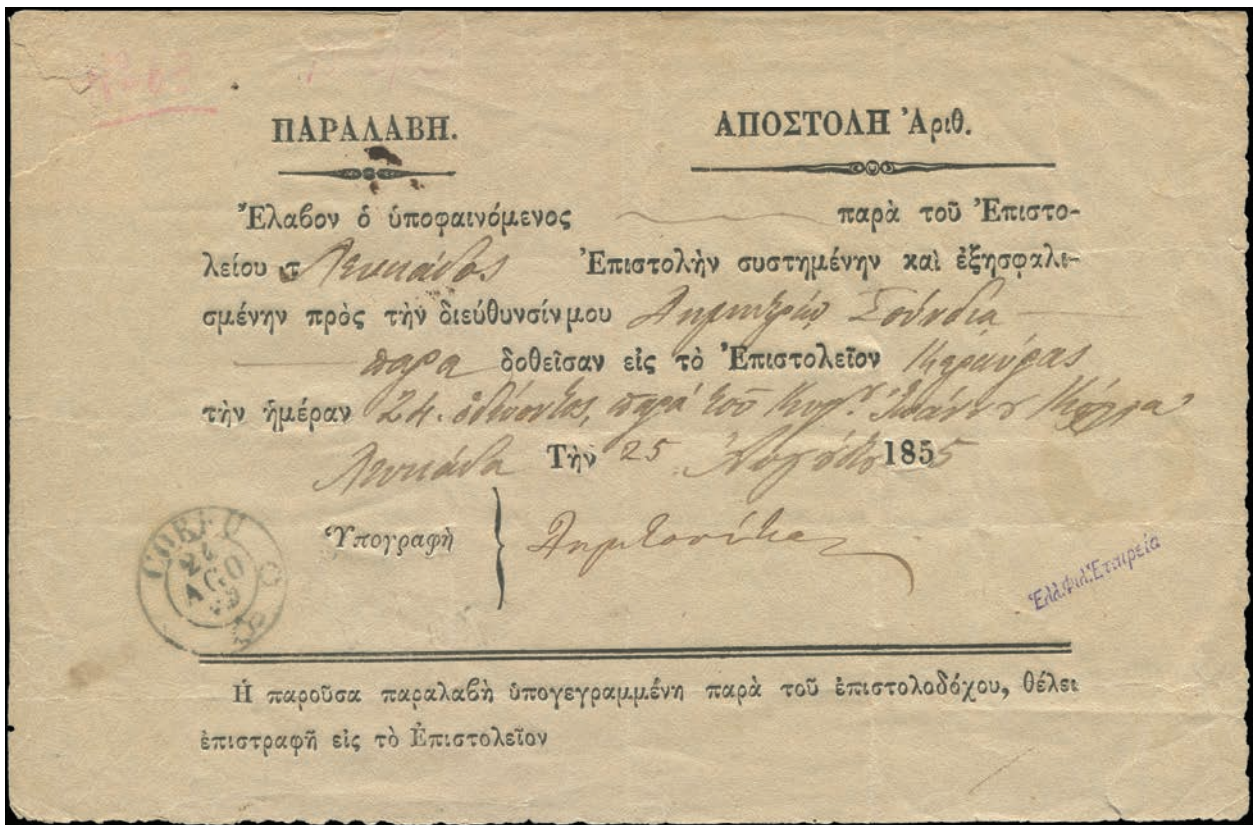 ΠΑΡΑΛΑΒΗ. ΑΠΟΣΤΟΛΗ Ἀριθ.
Ἔλαβον ὁ ὑποφαινόμενος παρὰ τοῦ Ἐπιστο-
λείου τ Λευκάδος Ἐπιστολὴν συστημένην καὶ ἐξησφαλι-
σμένην πρὸς τὴν διεύθυνσίν μου Δημητρίῳ
παρα δοθεῖσαν εἰς τὸ Ἐπιστολεῖον Κερκύρας
τὴν ἡμέραν 24. ὁδεύοντος, παρὰ τοῦ Κυρ. Ἰωάννου
Λευκάδα Τὴν 25 Αὐγούστου 1855
Ὑπογραφὴ
CORFU
24
AGO
Ἑλλ.Φιλ.Ἑταιρεία
Ἡ παροῦσα παραλαβὴ ὑπογεγραμμένη παρὰ τοῦ ἐπιστολοδόχου, θέλει
ἐπιστραφῆ εἰς τὸ Ἐπιστολεῖον